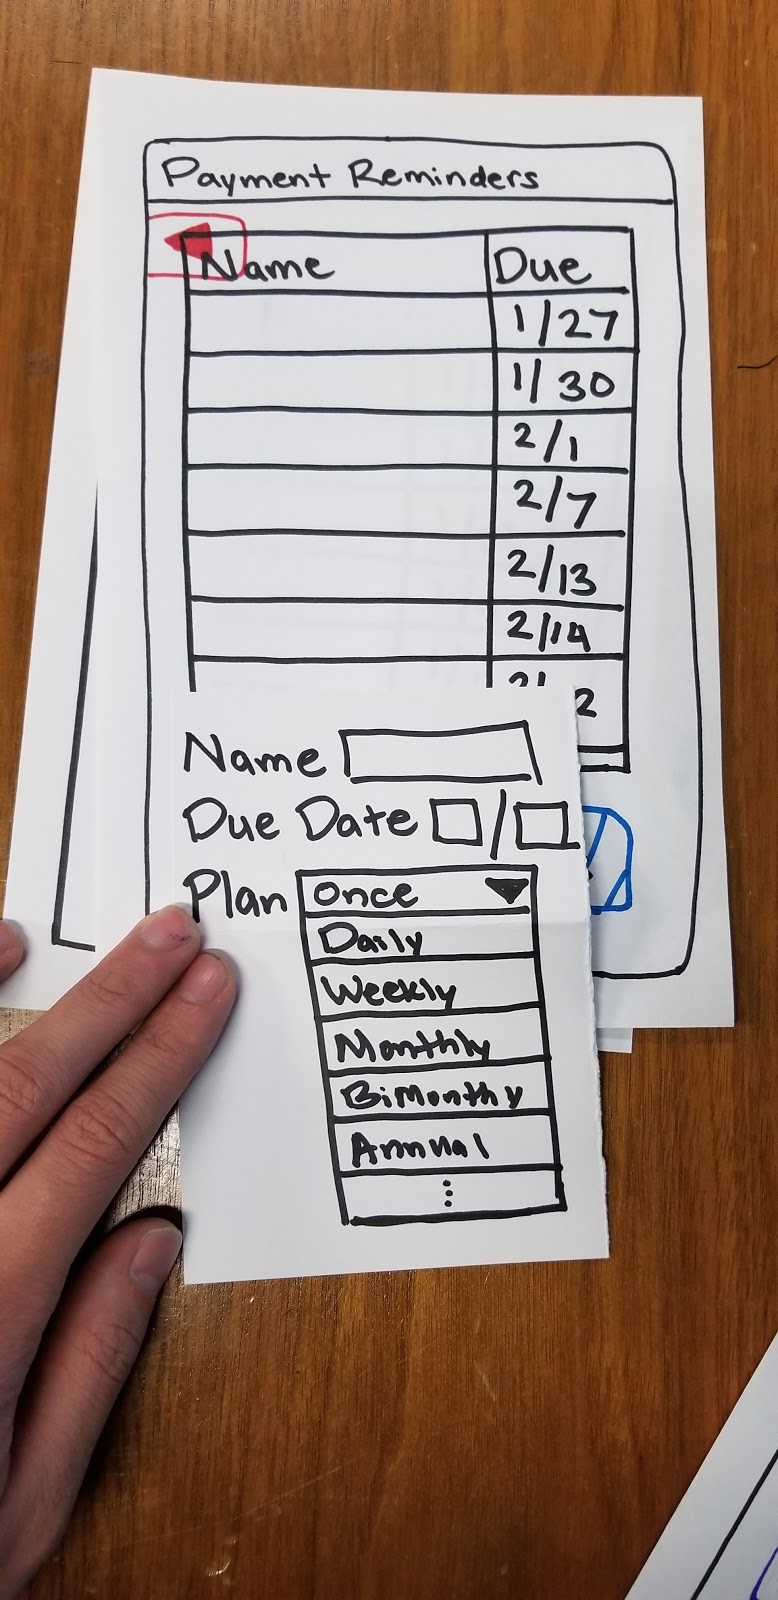 Payment Reminders
Name Due
1/27
1/30
2/1
2/7
2/13
2/14
Name
Due Date /
Plan Once
Daily
Weekly
Monthly
BiMonthy
Annual